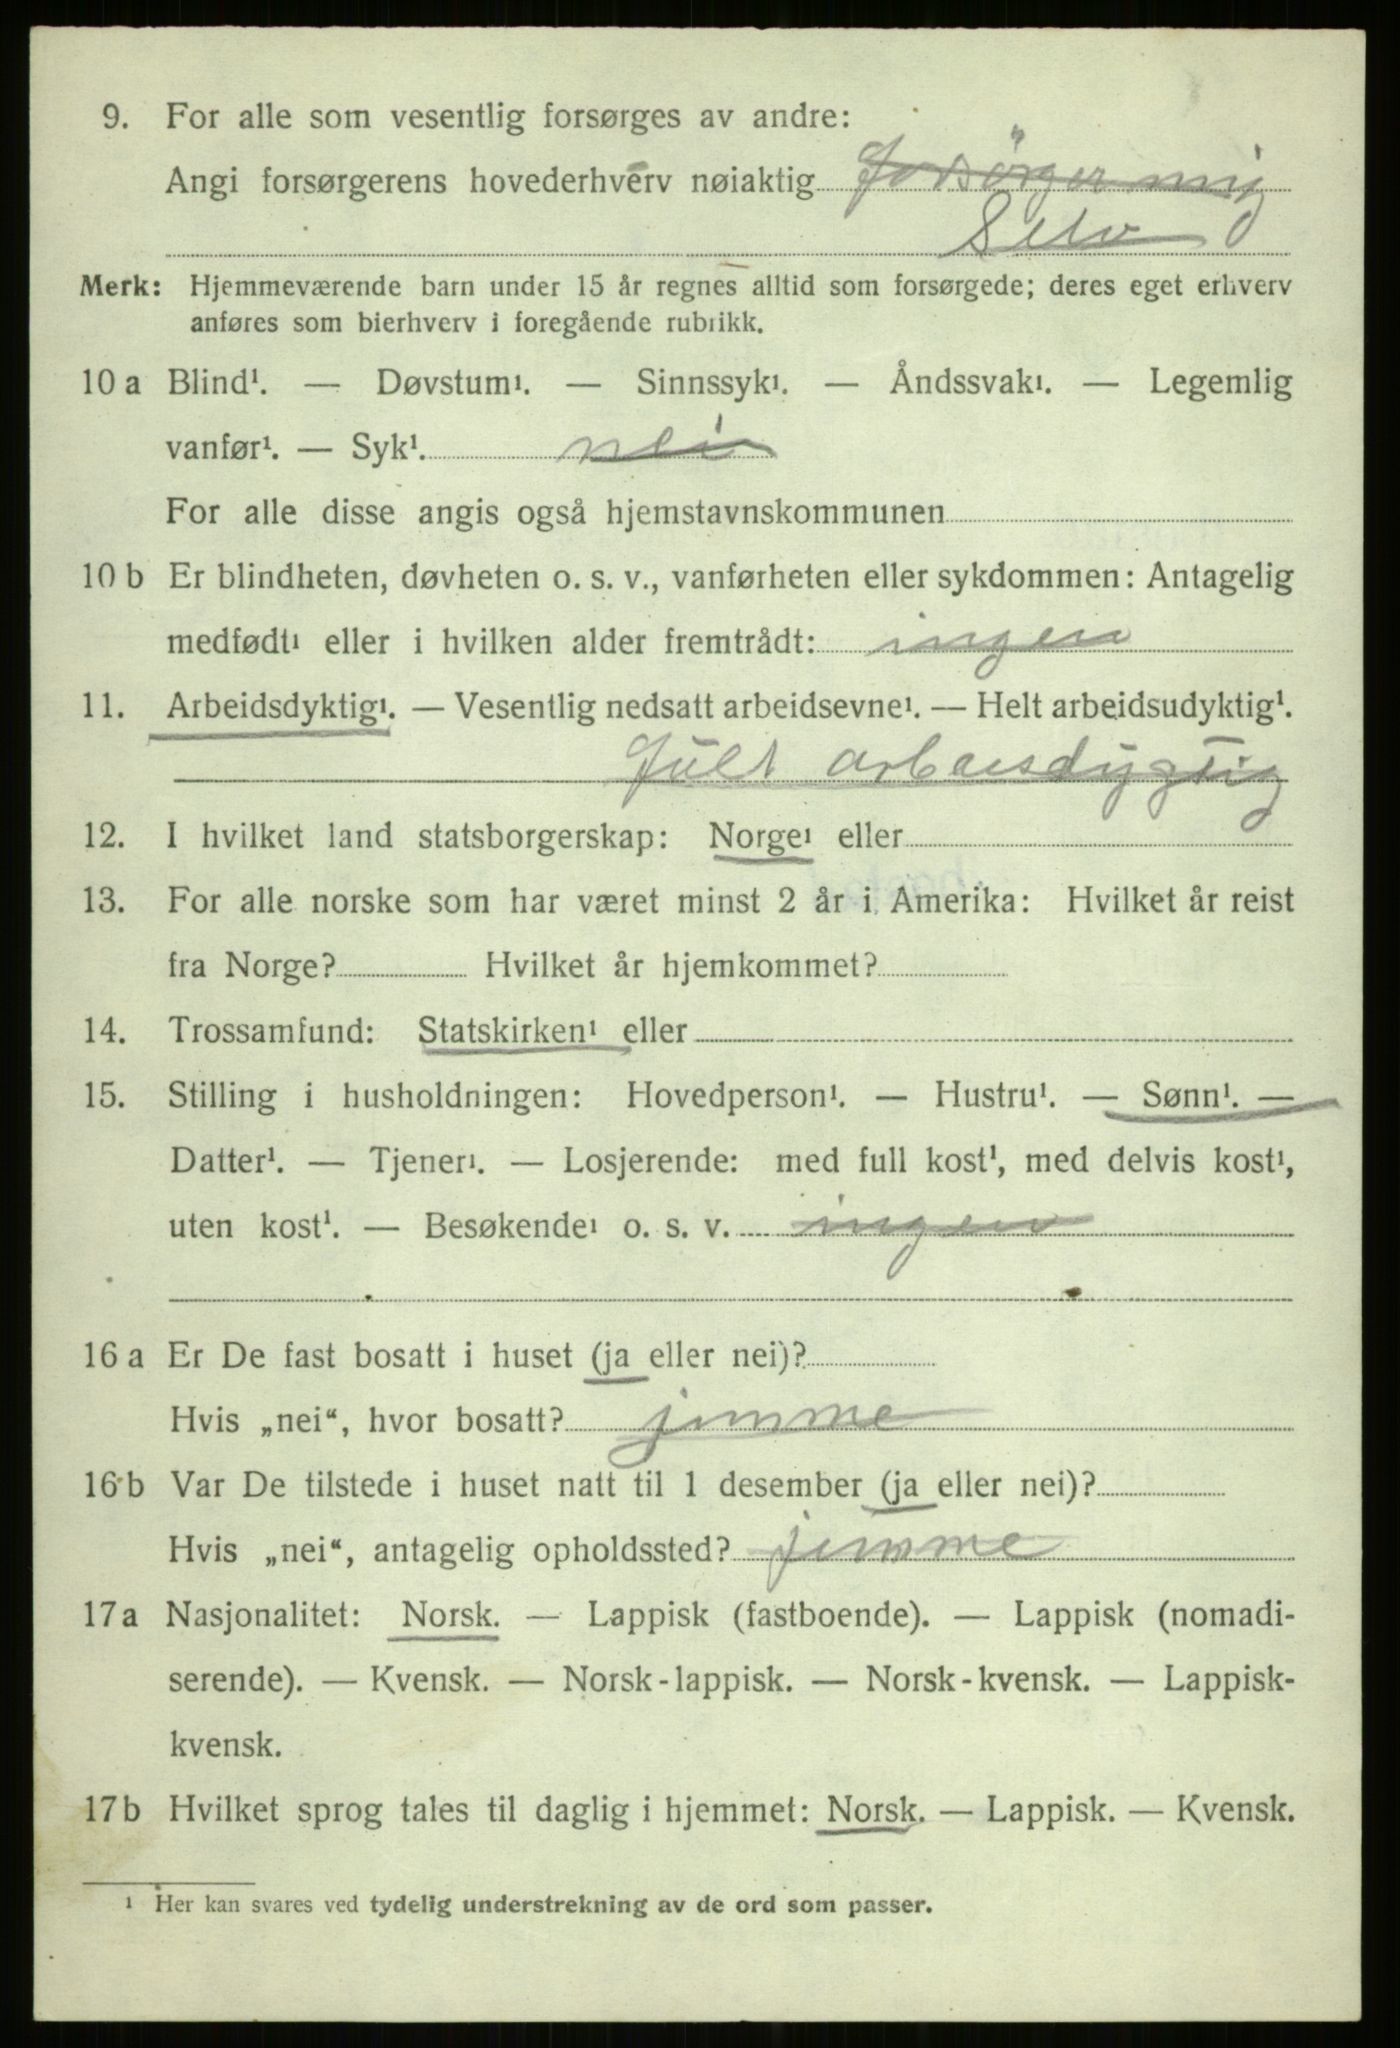 9. For alle som vesentlig forsørges av andre:
Angi forsørgerens hovederhverv nøiaktig Forsörger mig
Selv
Merk: Hjemmeværende barn under 15 år regnes alltid som forsørgede; deres eget erhverv
anføres som bierhverv i foregående rubrikk.
10 a Blind¹. — Døvstum¹. — Sinnssyk¹. — Åndssvak¹. — Legemlig
vanfør¹. — Syk¹. nei
For alle disse angis også hjemstavnskommunen
10 b Er blindheten, døvheten o. s. v., vanførheten eller sykdommen: Antagelig
medfødt¹ eller i hvilken alder fremtrådt: ingen
11. Arbeidsdyktig¹. — Vesentlig nedsatt arbeidsevne¹. — Helt arbeidsudyktig¹.
fult arbeisdygtig
12. I hvilket land statsborgerskap: Norge¹ eller
13. For alle norske som har været minst 2 år i Amerika: Hvilket år reist
fra Norge? Hvilket år hjemkommet?
14. Trossamfund: Statskirken¹ eller
15. Stilling i husholdningen: Hovedperson¹. — Hustru¹. — Sønn¹. —
Datter¹. — Tjener¹. — Losjerende: med full kost¹, med delvis kost¹,
uten kost¹. — Besøkende¹ o. s. v. ingen
16 a Er De fast bosatt i huset (ja eller nei)?
Hvis „nei“, hvor bosatt? jimme
16 b Var De tilstede i huset natt til 1 desember (ja eller nei)?
Hvis „nei“, antagelig opholdssted? jimme
17 a Nasjonalitet: Norsk. — Lappisk (fastboende). — Lappisk (nomadi-
serende). — Kvensk. — Norsk-lappisk. — Norsk-kvensk. — Lappisk-
kvensk.
17 b Hvilket sprog tales til daglig i hjemmet: Norsk. — Lappisk. — Kvensk.
¹ Her kan svares ved tydelig understrekning av de ord som passer.